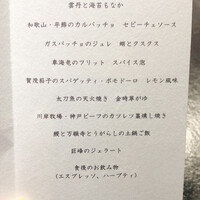 雲丹と海苔もなか
和歌山・平雅のカルパッチョ　セビーチェソース
ガスパッチョのジュレ　蛸とクスクス
車海老のフリット　スパイス泡
賀茂茄子のスパゲッティ・ポモドーロ　レモン風味
太刀魚の炭火焼き　金時草がゆ
川岸牧場・神戸ビーフのカツレツ藁燻し焼き
鰻と万願寺とうがらしの土鍋ご飯
巨峰のジェラート
食後のお飲み物
（エスプレッソ、ハーブティ）